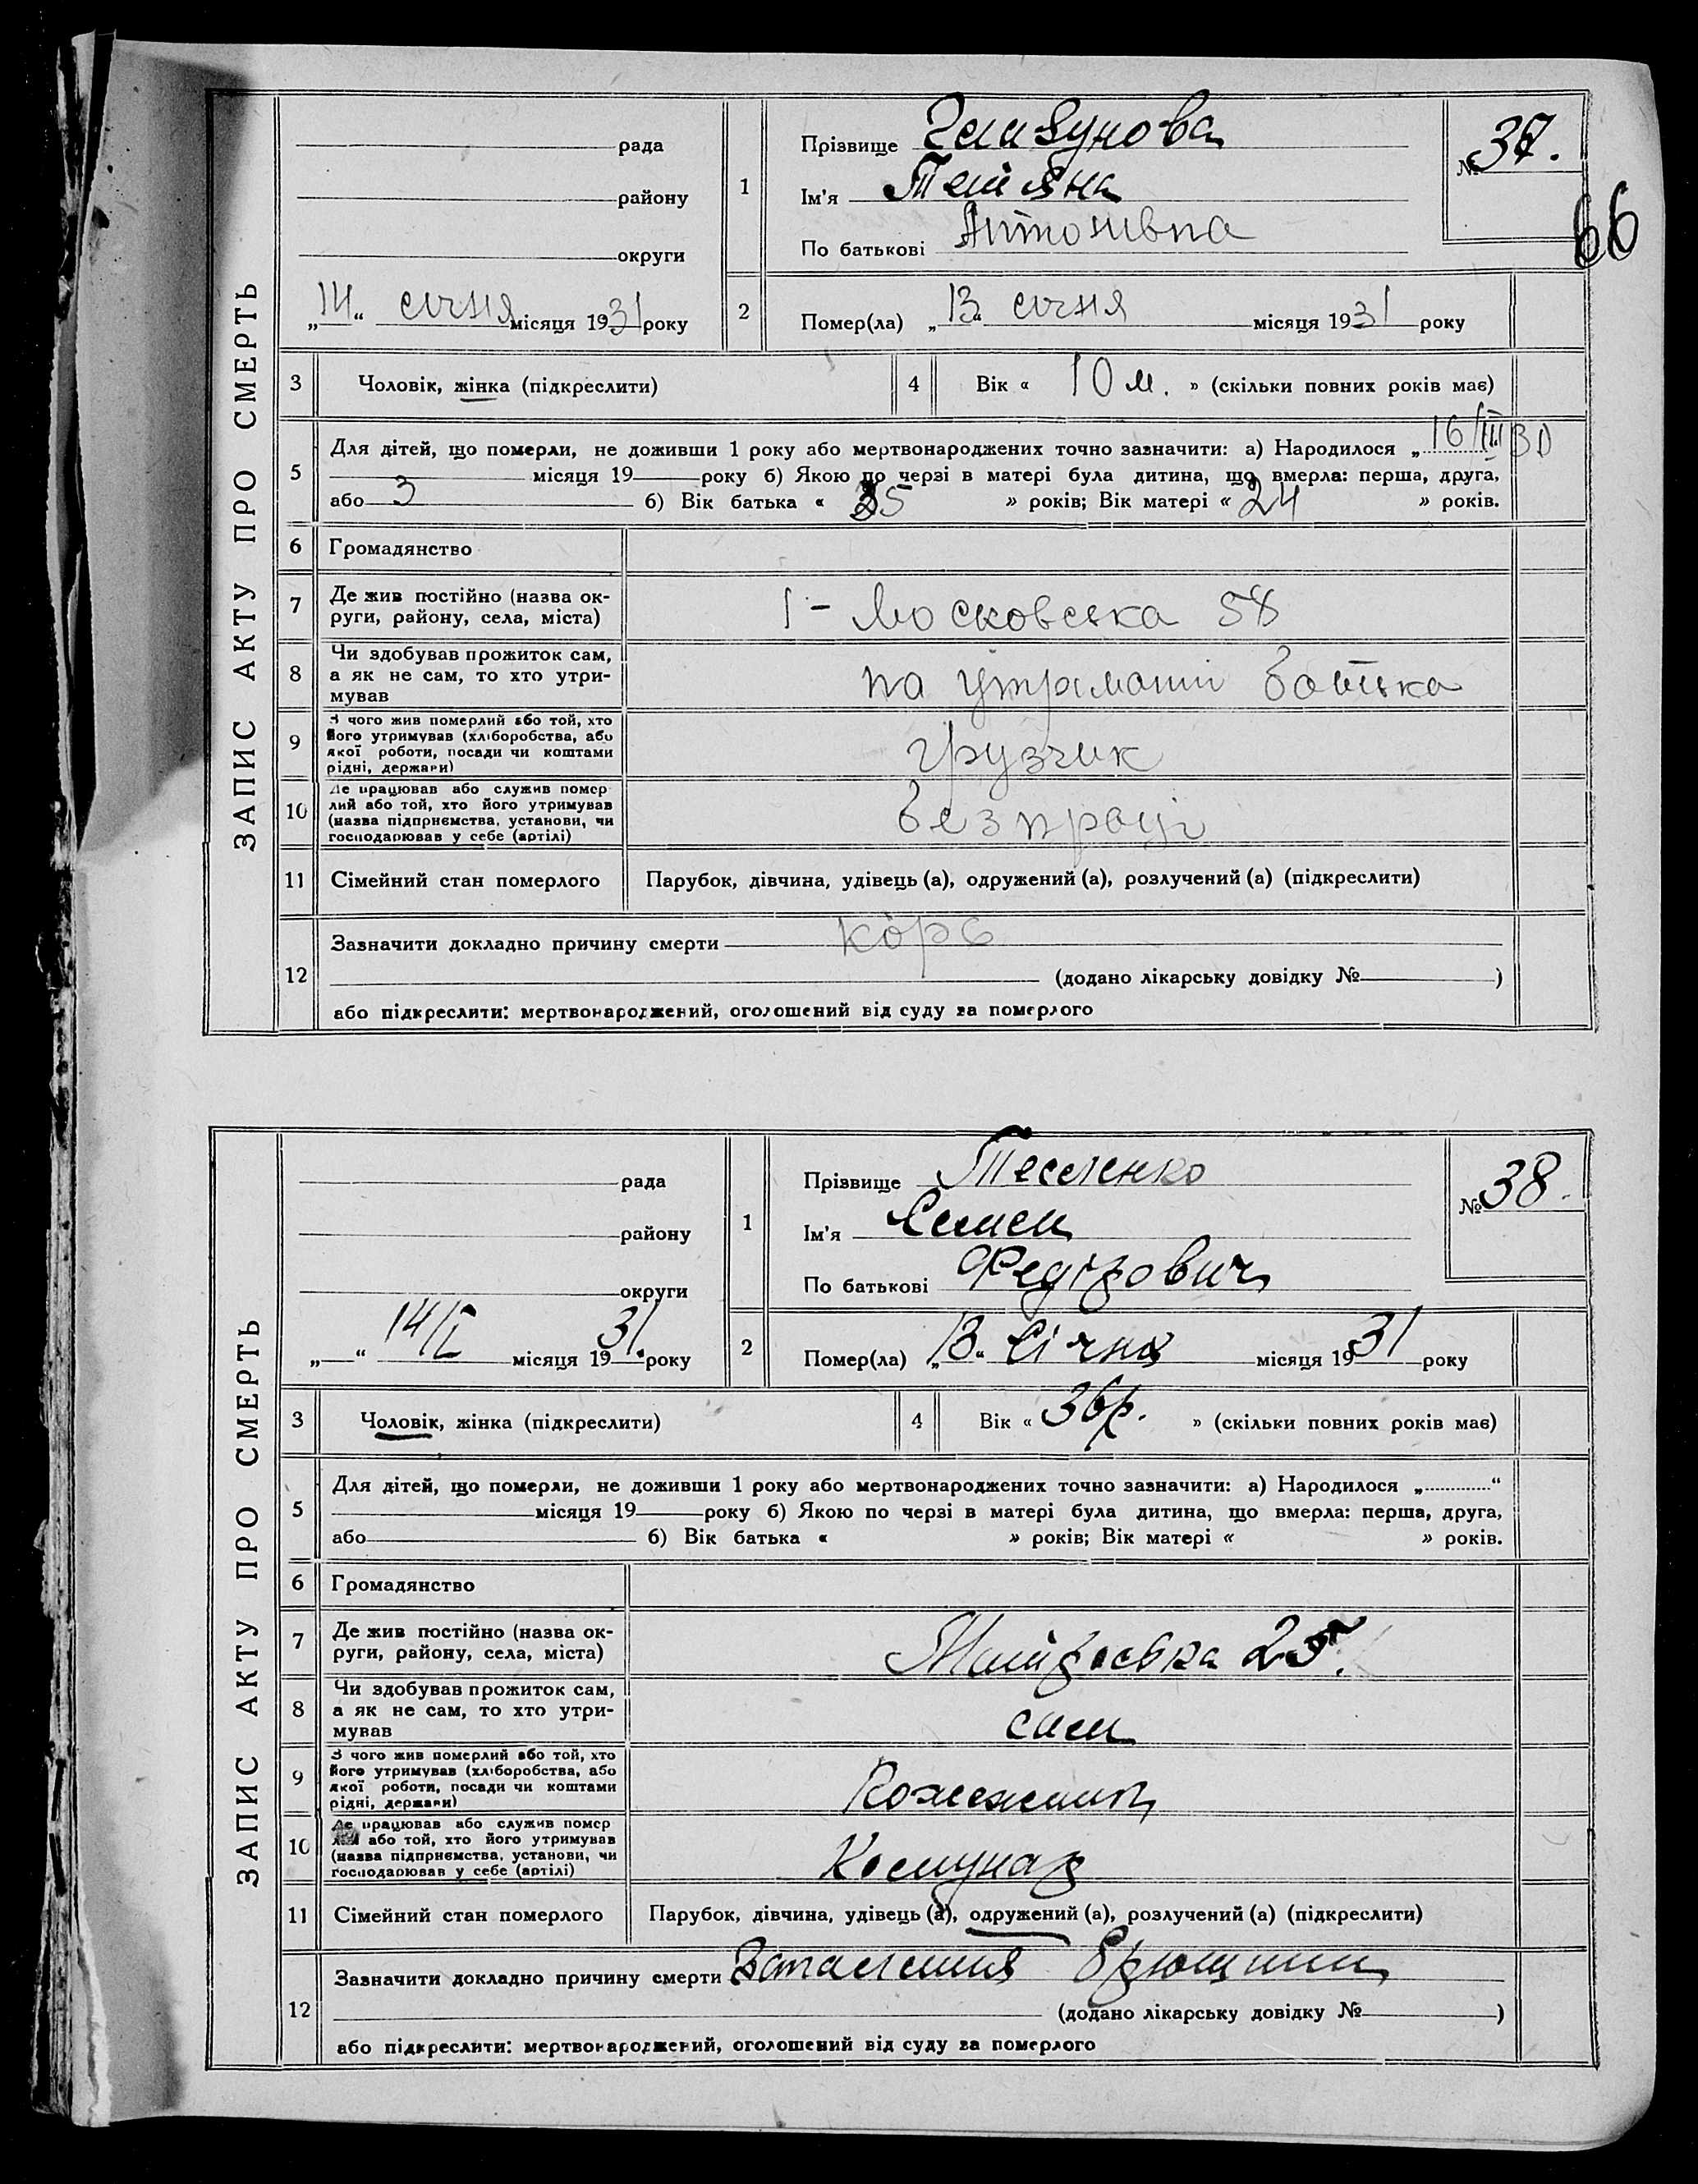 ЗАПИС АКТУ ПРО СМЕРТЬ
рада
району
округи
„14“ січня місяця 1931 року
1
Прізвище
Ім'я Тетяна
По батькові Антонівна
№ 37.
66
2
Помер(ла) „13“ січня місяця 1931 року
3
Чоловік, жінка (підкреслити)
4
Вік « 10 м. » (скільки повних років має)
5
Для дітей, що померли, не доживши 1 року або мертвонароджених точно зазначити: а) Народилося „ 16/III 30
місяця 19 року б) Якою по черзі в матері була дитина, що вмерла: перша, друга,
або 3 б) Вік батька « 35 » років; Вік матері « 24 » років.
6
Громадянство
7
Де жив постійно (назва ок-
руги, району, села, міста)
1 - Московська 58
8
Чи здобував прожиток сам,
а як не сам, то хто утри-
мував
на утриманні батька
9
З чого жив померлий або той, хто
його утримував (хліборобства, або
якої роботи, посади чи коштами
рідні, держави)
грузчик
10
Де працював або служив помер
лий або той, хто його утримував
(назва підприємства, установи, чи
господарював у себе (артілі)
без праці
11
Сімейний стан померлого
Парубок, дівчина, удівець (а), одружений (а), розлучений (а) (підкреслити)
12
Зазначити докладно причину смерти кор
(додано лікарську довідку № )
або підкреслити: мертвонароджений, оголошений від суду за померлого
ЗАПИС АКТУ ПРО СМЕРТЬ
рада
району
округи
„ “ 14/I місяця 1931. року
1
Прізвище Тесленко
Ім'я Семен
По батькові Федірович
№ 38.
2
Помер(ла) „13“ Січня місяця 1931 року
3
Чоловік, жінка (підкреслити)
4
Вік « 36 р. » (скільки повних років має)
5
Для дітей, що померли, не доживши 1 року або мертвонароджених точно зазначити: а) Народилося „ “
місяця 19 року б) Якою по черзі в матері була дитина, що вмерла: перша, друга,
або б) Вік батька « » років; Вік матері « » років.
6
Громадянство
7
Де жив постійно (назва ок-
руги, району, села, міста)
25.
8
Чи здобував прожиток сам,
а як не сам, то хто утри-
мував
сам
9
З чого жив померлий або той, хто
його утримував (хліборобства, або
якої роботи, посади чи коштами
рідні, держави)
10
Де працював або служив помер
лий або той, хто його утримував
(назва підприємства, установи, чи
господарював у себе (артілі)
Комунар
11
Сімейний стан померлого
Парубок, дівчина, удівець (а), одружений (а), розлучений (а) (підкреслити)
12
Зазначити докладно причину смерти Запалення брюшини
(додано лікарську довідку № )
або підкреслити: мертвонароджений, оголошений від суду за померлого